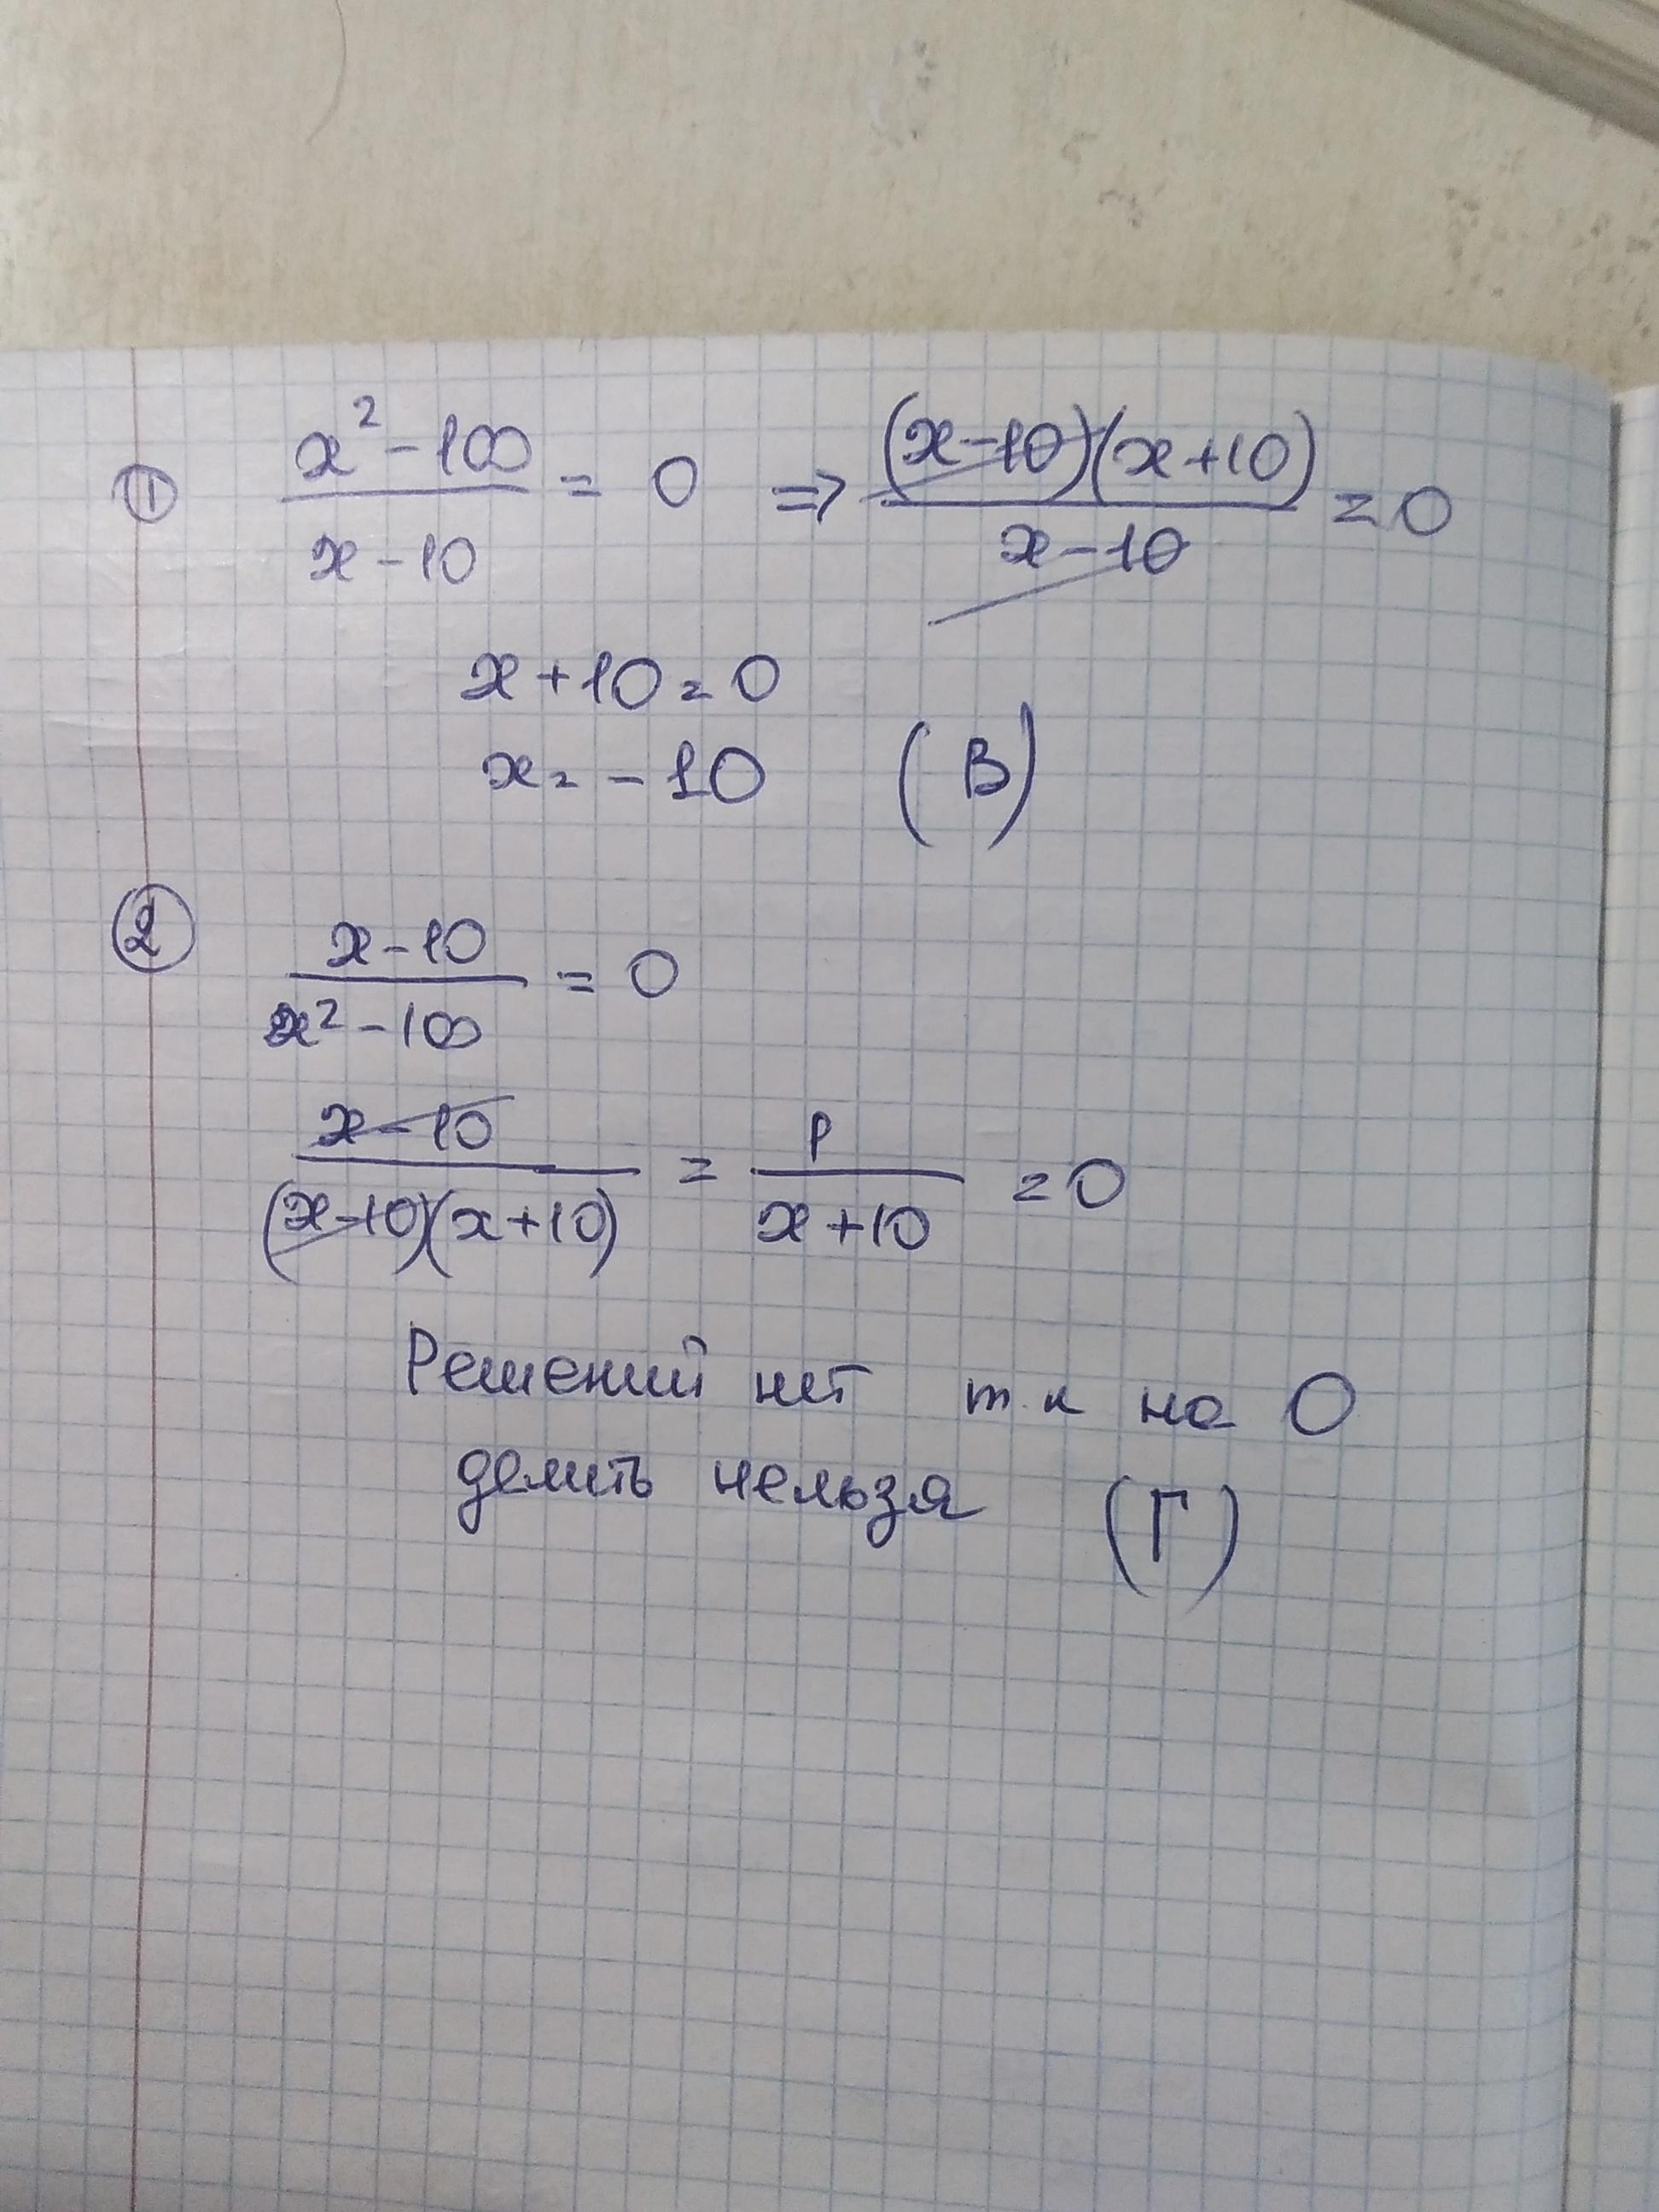 ① (x² - 100)/(x - 10) = 0 ⇒ ((x - 10)(x + 10))/(x - 10) = 0
x + 10 = 0
x = - 10 (В)
② (x - 10)/(x² - 100) = 0
(x - 10)/((x - 10)(x + 10)) = 1/(x + 10) = 0
Решений нет т.к на 0
делить нельзя (Г)